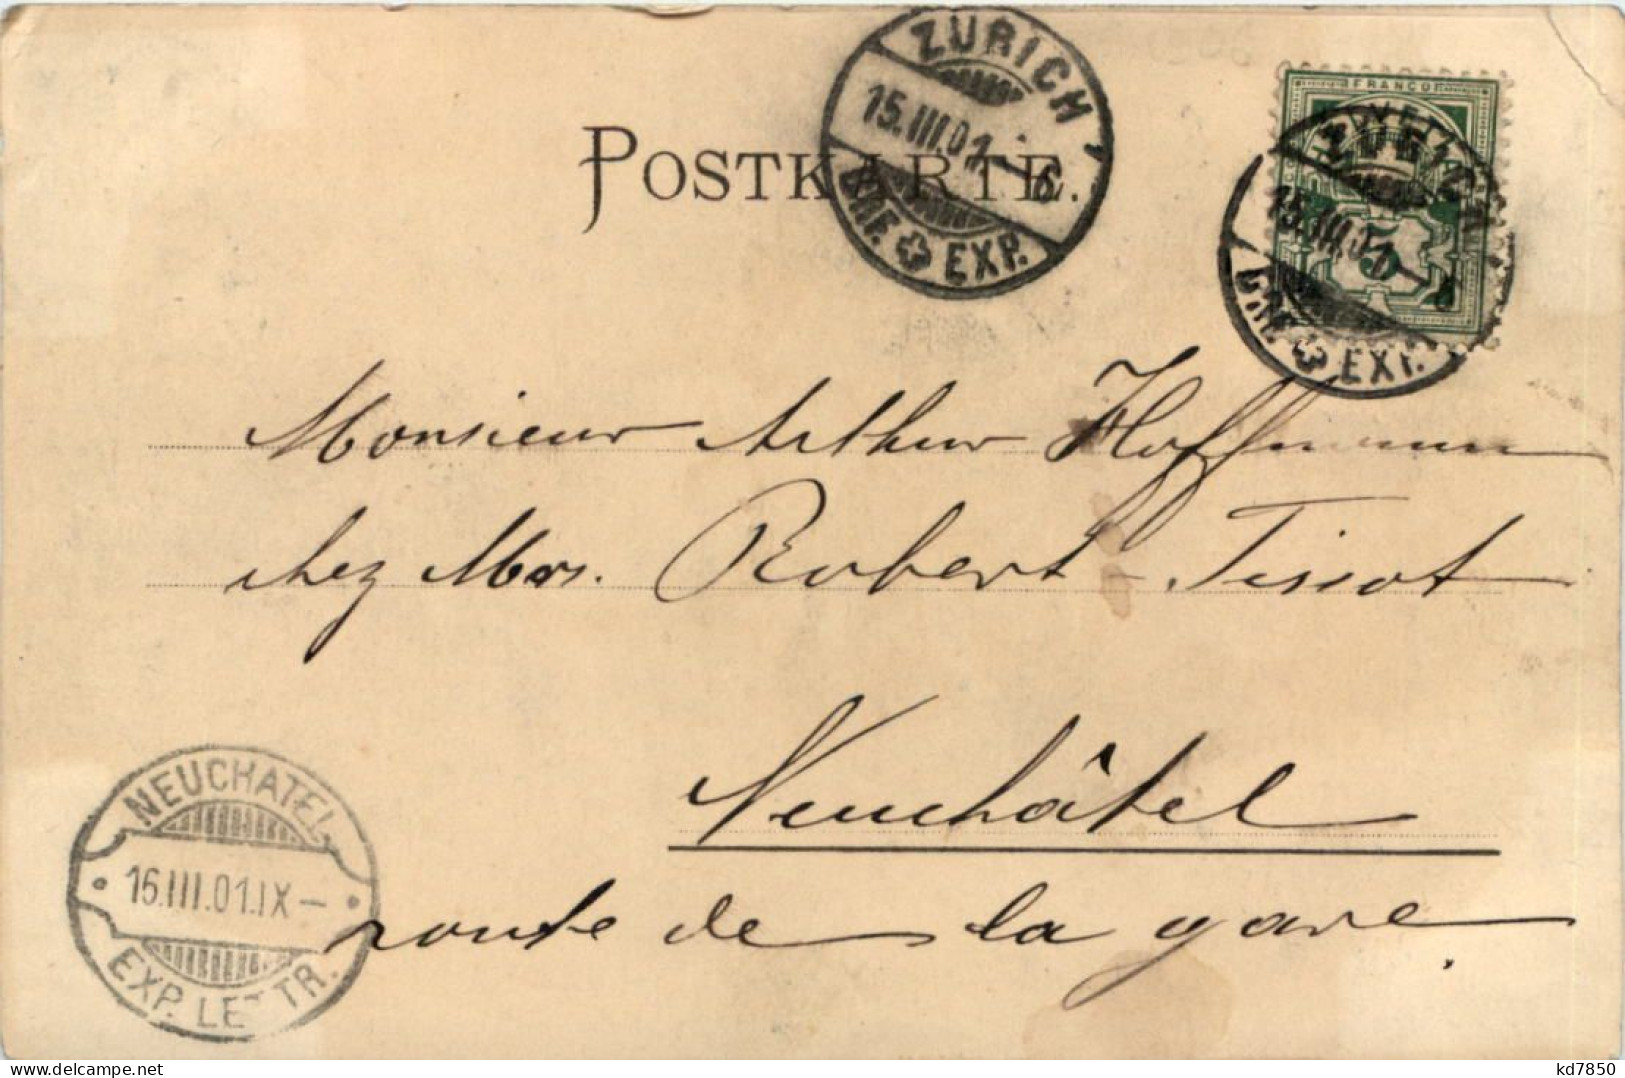 ZÜRICH
15.III.01.-6
BRF. EXP.
POSTKARTE.
FRANCO
15.III.01.-
BRF. EXP.
5
Monsieur Arthur Hoffmann
chez Mrs. Robert-Tissot
Neuchâtel
route de la gare.
NEUCHATEL
16.III.01.IX-
EXP. LETTR.
delcampe.net
kd7850